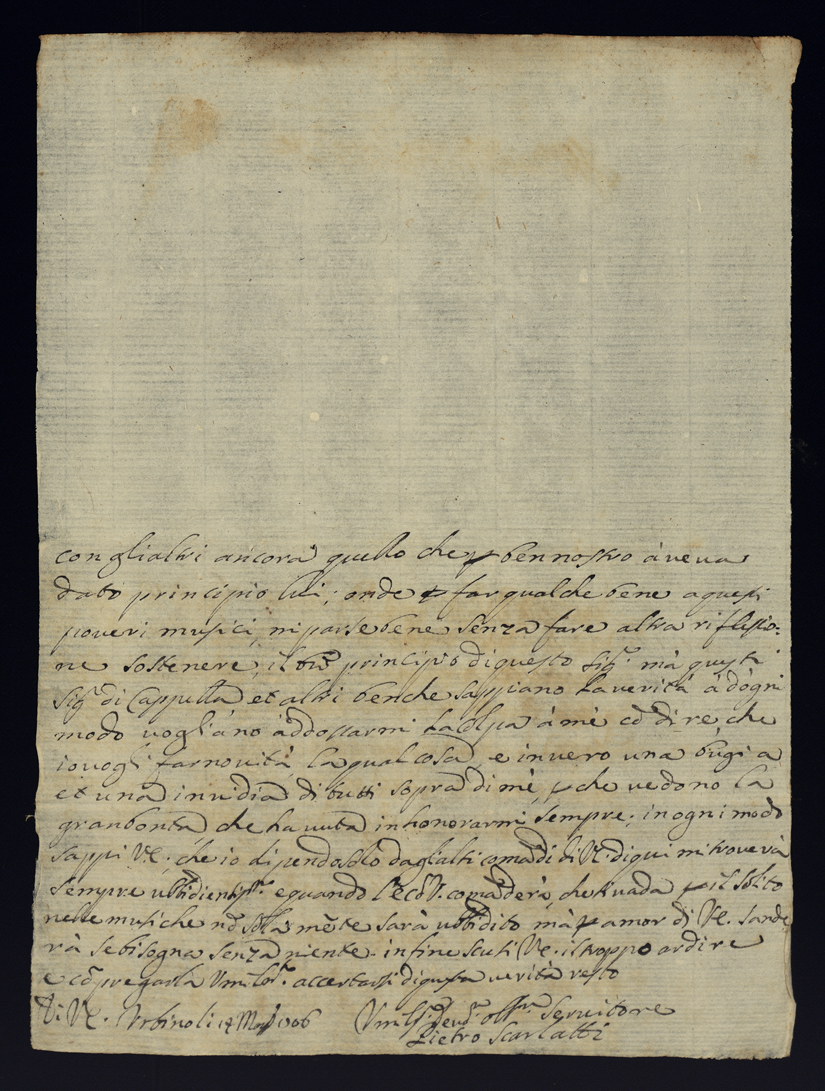 con gli altri ancora quello che p ben nostro áveva
dato principio lui; onde p far qualche bene a questi
poveri musici, mi parse bene senza fare altra riflessio=
ne sostenere, il bũ principio di questo Sig.r mà questi
Sig.ri di Cappella et altri benche sappiano la verità ád'ogni
modo uogliáno áddossarmi la colpa ámè cõ dire, che
io uogli far novità, la qual cosa, e in vero una bugia
et una invidia di tutti sopra di mè, p che vedono la
gran bontà, che ha uuta in honorarmi sempre; in ogni modo
sappi VE.; che io dipendo solo dagl'alti comãdi di VE. di qui mi troverà
sempre ubbidientiss.o e quando l'Ecc. V. comãderà, che si vada p il solito
nelle musiche nõ solamẽte sarà ubbidito mà p amor di VE. s'ande
rà se bisogna senza niente. in fine scusi VE. il troppo ardire
e cõ pregarla Umilm.te accertarsi di questa verità resto
Di VE. Urbino li 14 Mag.o 1706 Umiliss.o Devot.o oss.mo Servitore
Pietro Scarlatti